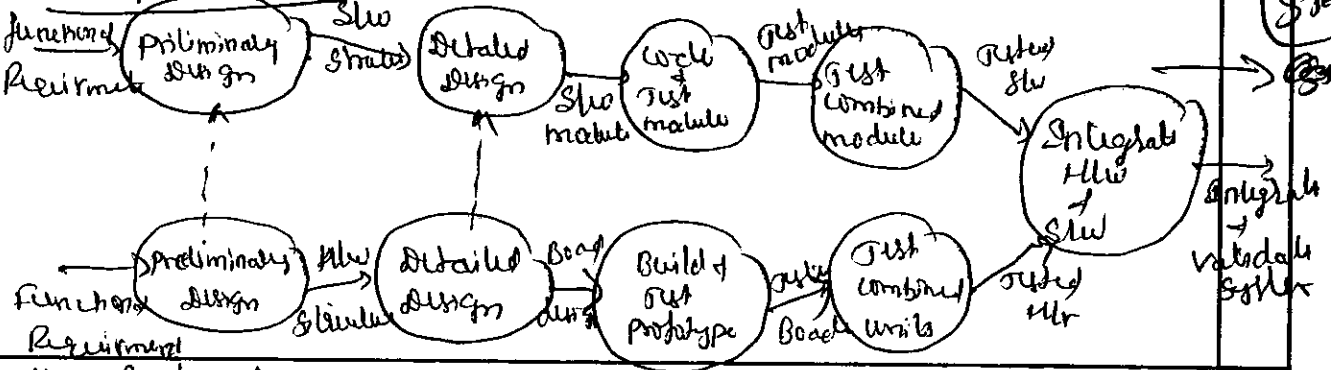 functional
Requirment
Priliminary
Design
S/w
Struture
Detaled
Design
S/w
module
Code
&
Test
module
Test
module
Test
combined
module
Tested
S/w
Integrate
H/w
&
S/w
Integrate
&
Validate
System
Functional
Requirment
Preliminary
Design
H/w
Detailed
Design
Board
design
Build &
Test
prototype
Tested
Board
Test
combined
units
Tested
H/w